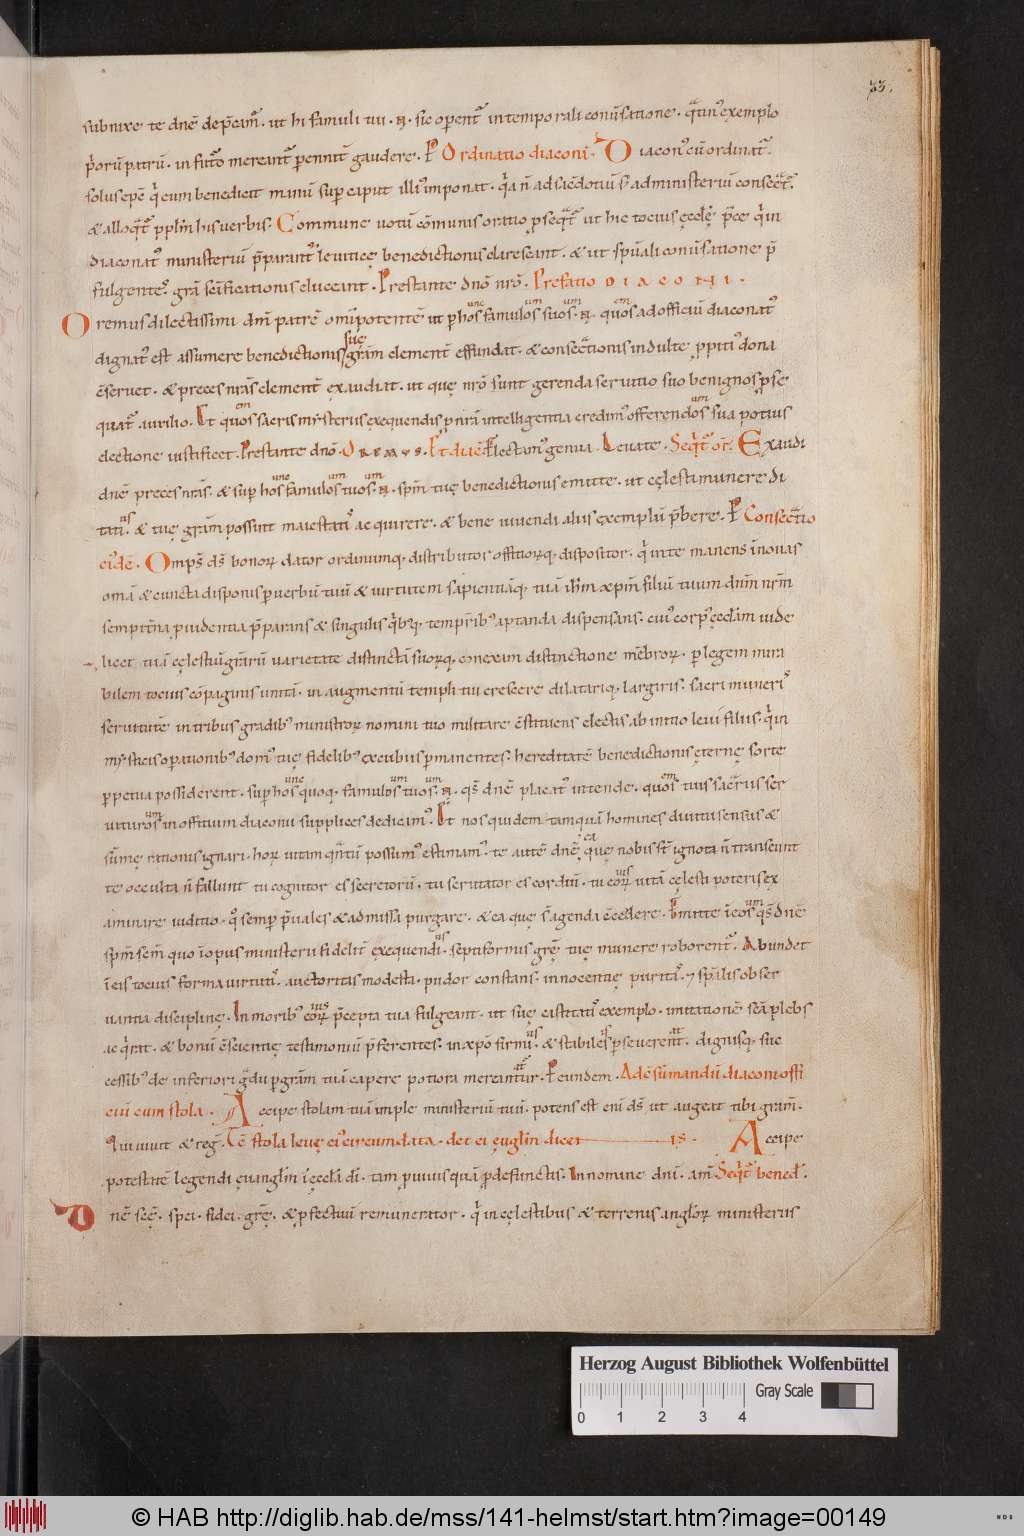 33.
subnixe te dnē dep̄cam̄. ut hi famuli tui . N . sic op̄ent᷑ in temporali conūsatione . q̄tin' exemplo
p̄orū patrū . in fut᷑o mereant᷑ p̄ennit᷑ gaudere . Ordinatio diaconi . Diacon' cū ordinat᷑ .
solus epc̄ q̄ eum benedicit manū sup̄ caput illi' imponat . q̄a n̄ ad sacdotiū s; ad ministeriū consec̄t᷑ .
& alloq̄t᷑ pplm̄ his verbis . Commune votū cōmunis oratio p̱seq̄t᷑ ut hic tocius ęcclę p̄ce q̄ in
diaconat' ministeriū p̄parant᷑ leuiticę benedictionis clarescant . & ut spūali conūsatione p̄
fulgentes grā scīficationis eluceant . Prestante dnō nrō . Prefatio DIACONI .
Oremus dilectissimi dm̄ patrē om̄ipotentē ut sup̄ hos famulos suos . N . quos ad officiū diaconat'
unc um um em
dignat' est assumere benedictionis grām clement̄ effundat . & consec̄tionis indulte p̱piti' dona
suę
c̄seruet . & preces nrās clement̄ exaudiat . ut quę nrō sunt gerenda seruitio suo benignos p̱se
quat᷑ auxilio . Et quos sacris mysteriis exequendis p̱ nrā intelligentia credim' offerendos sua potius
em um
electione iustificet . Prestante dnō . OREMUS . Et diac̄ Flectam' genua . Leuate . Seq̄t᷑ or̄ . Exaudi
dnē preces nrās . & sup̄ hos famulos tuos . N . spm̄ tuę benedictionis emitte . ut cęlesti munere di
unc um um
tati . & tuę grām possint maiestatis acquirere . & bene uiuendi aliis exemplū p̄bere . Consec̄tio
us
ei'dē . Omps̄ ds̄ honorꝝ dator ordinumq; distributor officiorꝝq; dispositor . q̄ in te manens īnouas
om̄a & cuncta disponis p̱ verbū tuū & uirtutem sapientiāq; tuā ihm̄ xp̄m filiū tuum dnm̄ nrm̄
sempit̄na p̱uidentia p̄paras & singulis q̄bq; temp̄rib' aptanda dispensans . cui' corp' ęccl̄am uide
licet tuā cęlestiū grārū uarietate distinctā suorꝝq; conexam distinctione mēbrorꝝ . p̱ legem mira
bilem tocius cōpaginis unitā . in augmentū templi tui crescere dilatariq; largiris . sacri muneris
seruitutē in tribus gradib' ministrorꝝ nomini tuo militare c̄stituens electis ab initio leui filiis . q̄ in
mysticis op̱ationib' dom' tuę fidelib' excubiis p̱manentes . hereditatē benedictionis ęternę sorte
p̱petua possiderent . sup̱ hos quoq; famulos tuos . N . qs̄ dnē placat' intende . quos tuis sac̄riis ser
unc um um em
uituros in officium diaconii supplices dedicam' . Et nos quidem tamquā homines diuini sensus &
um
sūmę rationis ignari . horꝝ uitam q̄ntū possum' estimam' . te autē dnē que nobis st̄ ignota n̄ transeunt
ea
te occulta n̄ fallunt tu cognitor es secretorū . tu scrutator es cordiū . tu eorꝝ uitā cęlesti poteris ex
uis
aminare iuditio . q̄ semp̱ p̄uales & admissa purgare . & ea que s̄ agenda c̄cedere . Emitte ī eos qs̄ dnē
um
spm̄ scm̄ quo ī opus ministerii fidelit᷑ exequendi . septiformis grę̄ tuę munere roborent᷑ . Abundet
us
ī eis tocius forma uirtutis . auctoritas modesta . pudor constans . innocentię puritas . & sp̄alis obser
uantia disciplinę . In morib' eorꝝ p̄cepta tua fulgeant . ut suę castitatis exemplo . imitationē scā plebs
uis
acq̄rat . & bonū c̄scientię testimoniū p̄ferentes . in xp̄o firmi . & stabiles p̱seuerent . dignisq; suc
us is at
cessib' de inferiori g̊du p̱ grām tuā capere potiora mereantur . P̱ eundem . Ad c̄sūmandū diaconi offi
at
ciū cum stola . Accipe stolam tuā imple ministeriū tuū . potens est eni ds̄ ut augeat tibi grām̄ .
Qui uiuit & reg̅ . Tē stola leuę ei' circumdata . det ei ęuglm̄ dicens . Accipe
potestatē legendi ęuanglm̄ ī ęccl̄a dī . tam p̱ uiuis quā p̱ defunctis . In nomine dnī . am̄ Seq̄t᷑ bened̄ .
Dnē scē̄ . spei . fidei . grę̄ . & p̱fectuū remunerator . q̄ in cęlestibus & terrenis anglorꝝ ministeriis
Herzog August Bibliothek Wolfenbüttel
0 1 2 3 4 Gray Scale
© HAB http://diglib.hab.de/mss/141-helmst/start.htm?image=00149